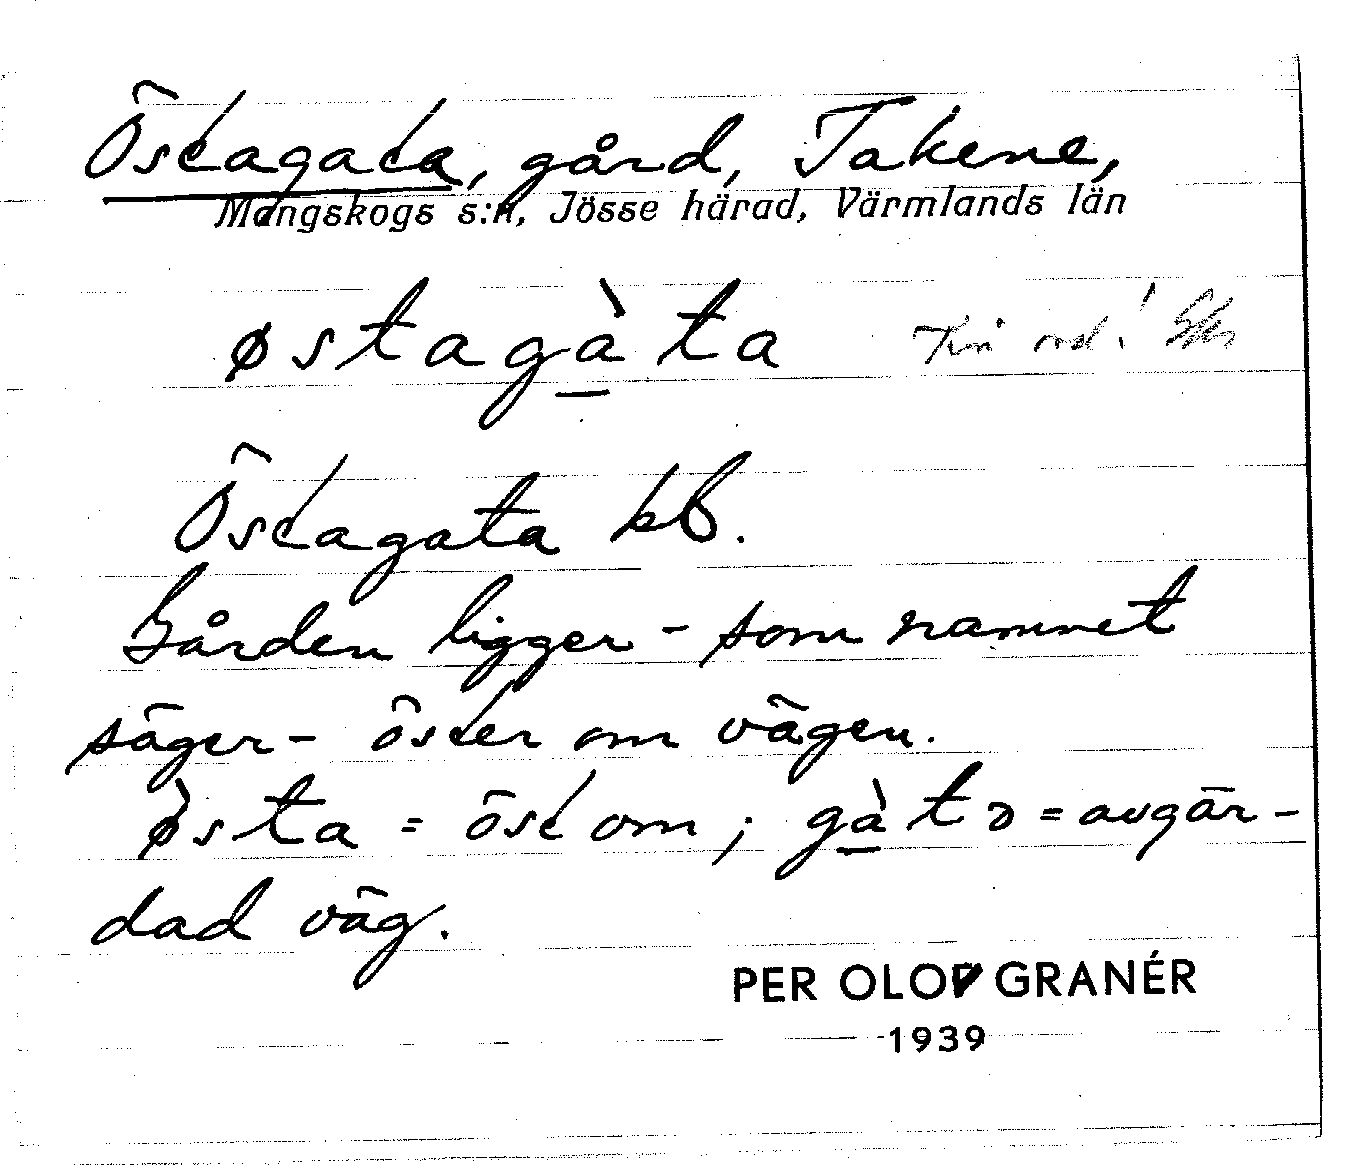 Östagata, gård, Takene,
Mangskogs s:n, Jösse härad, Värmlands län
østagàta
Östagata kb.
Gården ligger - som namnet
säger - öster om vägen.
østa = öst om; gàtə = avgär-
dad väg.
PER OLOV GRANÉR
1939